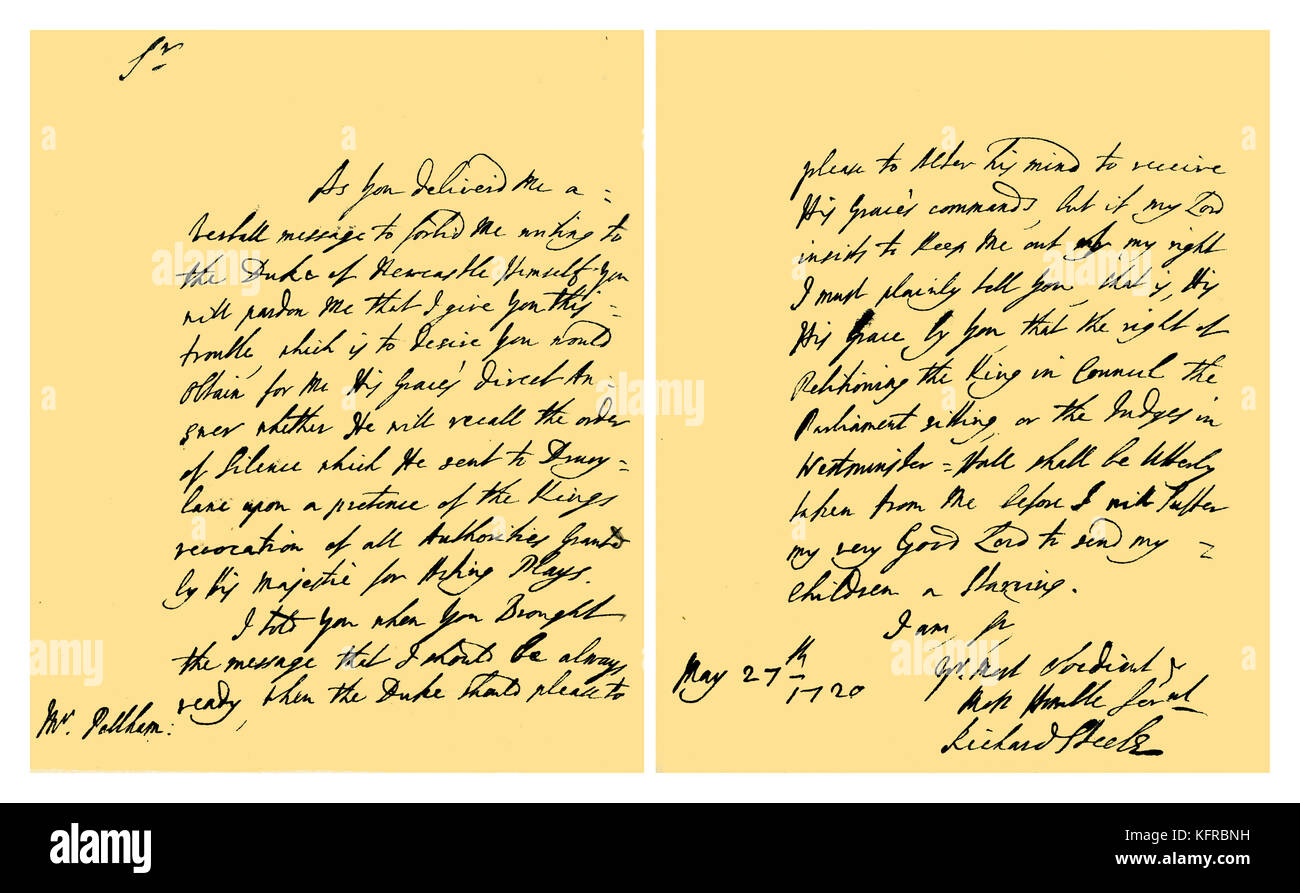 Sr
As You deliverd Me a =
verball message to forbid Me writing to
the Duke of Newcastle Himself You
will pardon Me that I give You this =
trouble, which is to desire You would
obtain for Me His Grace's direct An =
swer whether He will recall the order
of Silence which He sent to Drury =
lane upon a pretence of the Kings
revocation of all Authorities Granted
by His Majestie for Acting Plays.
I told You when You Brought
the message that I should be always
ready, when the Duke should please to
Mr. Pellham:
please to Alter his mind to receive
His Grace's commands, but if my Lord
insists to keep Me out of my right
I must plainly tell You, that is, His
His Grace by You, that the right of
Petitioning the King in Council the
Parliament sitting, or the Judges in
Westminster = Hall shall be Utterly
taken from Me before I will suffer
my very Good Lord to send my =
children a Starving.
I am, Sr
Yr. Most Obedient &
Most Humble Servnt
Richard Steele
May 27th
1720
alamy
alamy
alamy
a
a
a
a
a
a
a
a
a
a
alamy
Image ID: KFRBNH
www.alamy.com